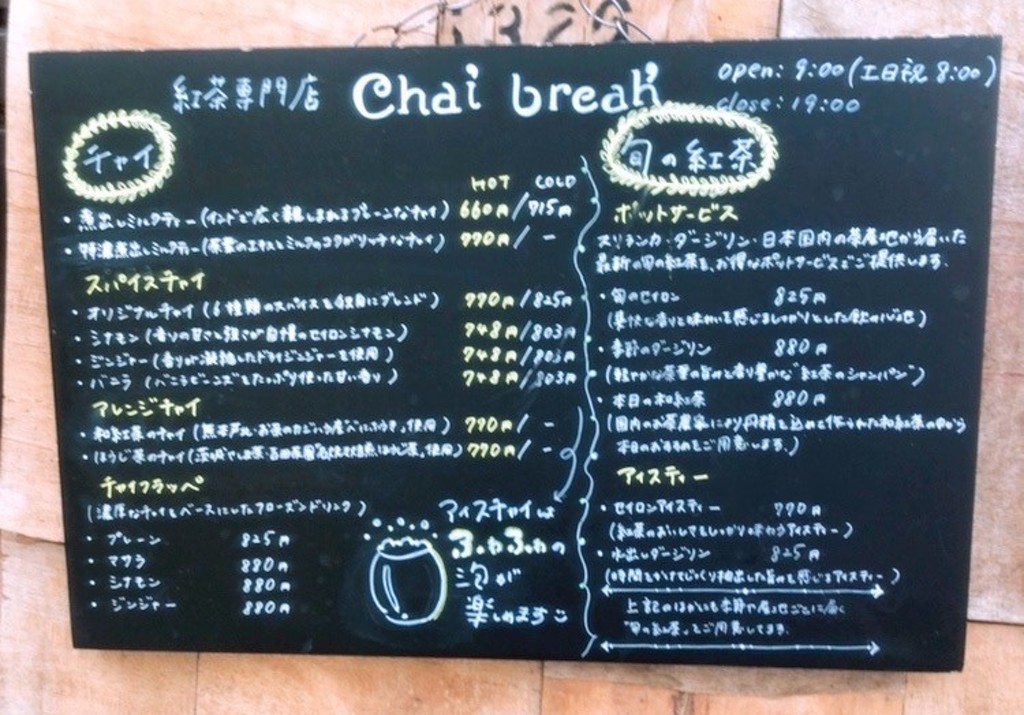 紅茶専門店 Chai break
open: 9:00 (土日祝 8:00)
close: 19:00
チャイ
HOT COLD
・煮出しミルクティー (インドで広く親しまれるプレーンなチャイ) 660円/715円
・特濃煮出しミルクティー (茶葉のエキスとミルクのコクがリッチなチャイ) 770円/ -
スパイスチャイ
・オリジナルチャイ (6種類のスパイスを独自にブレンド) 770円/825円
・シナモン (香りの甘さと強さが自慢のセイロンシナモン) 748円/803円
・ジンジャー (香りが凝縮したドライジンジャーを使用) 748円/803円
・バニラ (バニラビーンズをたっぷり使った甘い香り) 748円/803円
アレンジチャイ
・和紅茶のチャイ (熊本 お茶のカジハラ 使用) 770円/ -
・ほうじ茶のチャイ (茨城 吉田茶園 ほうじ茶 使用) 770円/ -
チャイフラッペ
(濃厚なチャイをベースにしたフローズンドリンク)
・プレーン 825円
・マサラ 880円
・シナモン 880円
・ジンジャー 880円
アイスチャイは
ふわふわの
泡が
楽しめます
旬の紅茶
ポットサービス
スリランカ・ダージリン・日本国内の茶産地から届いた
最新の旬の紅茶を、お得なポットサービスでご提供します。
・旬のセイロン 825円
(爽快な香りと味わいを感じるしっかりとした飲み心地)
・季節のダージリン 880円
(軽やかな茶葉の旨みと香り豊かな"紅茶のシャンパン")
・本日の和紅茶 880円
(国内のお茶農家により丹精を込めて作られた和紅茶の中から
本日のおすすめをご用意します。)
アイスティー
・セイロンアイスティー 770円
(紅茶のおいしさをしっかり味わうアイスティー)
・水出しダージリン 825円
(時間をかけてじっくり抽出した旨みを感じるアイスティー)
上記のほかにも季節や産地ごとに届く
"旬の紅茶"をご用意してます。